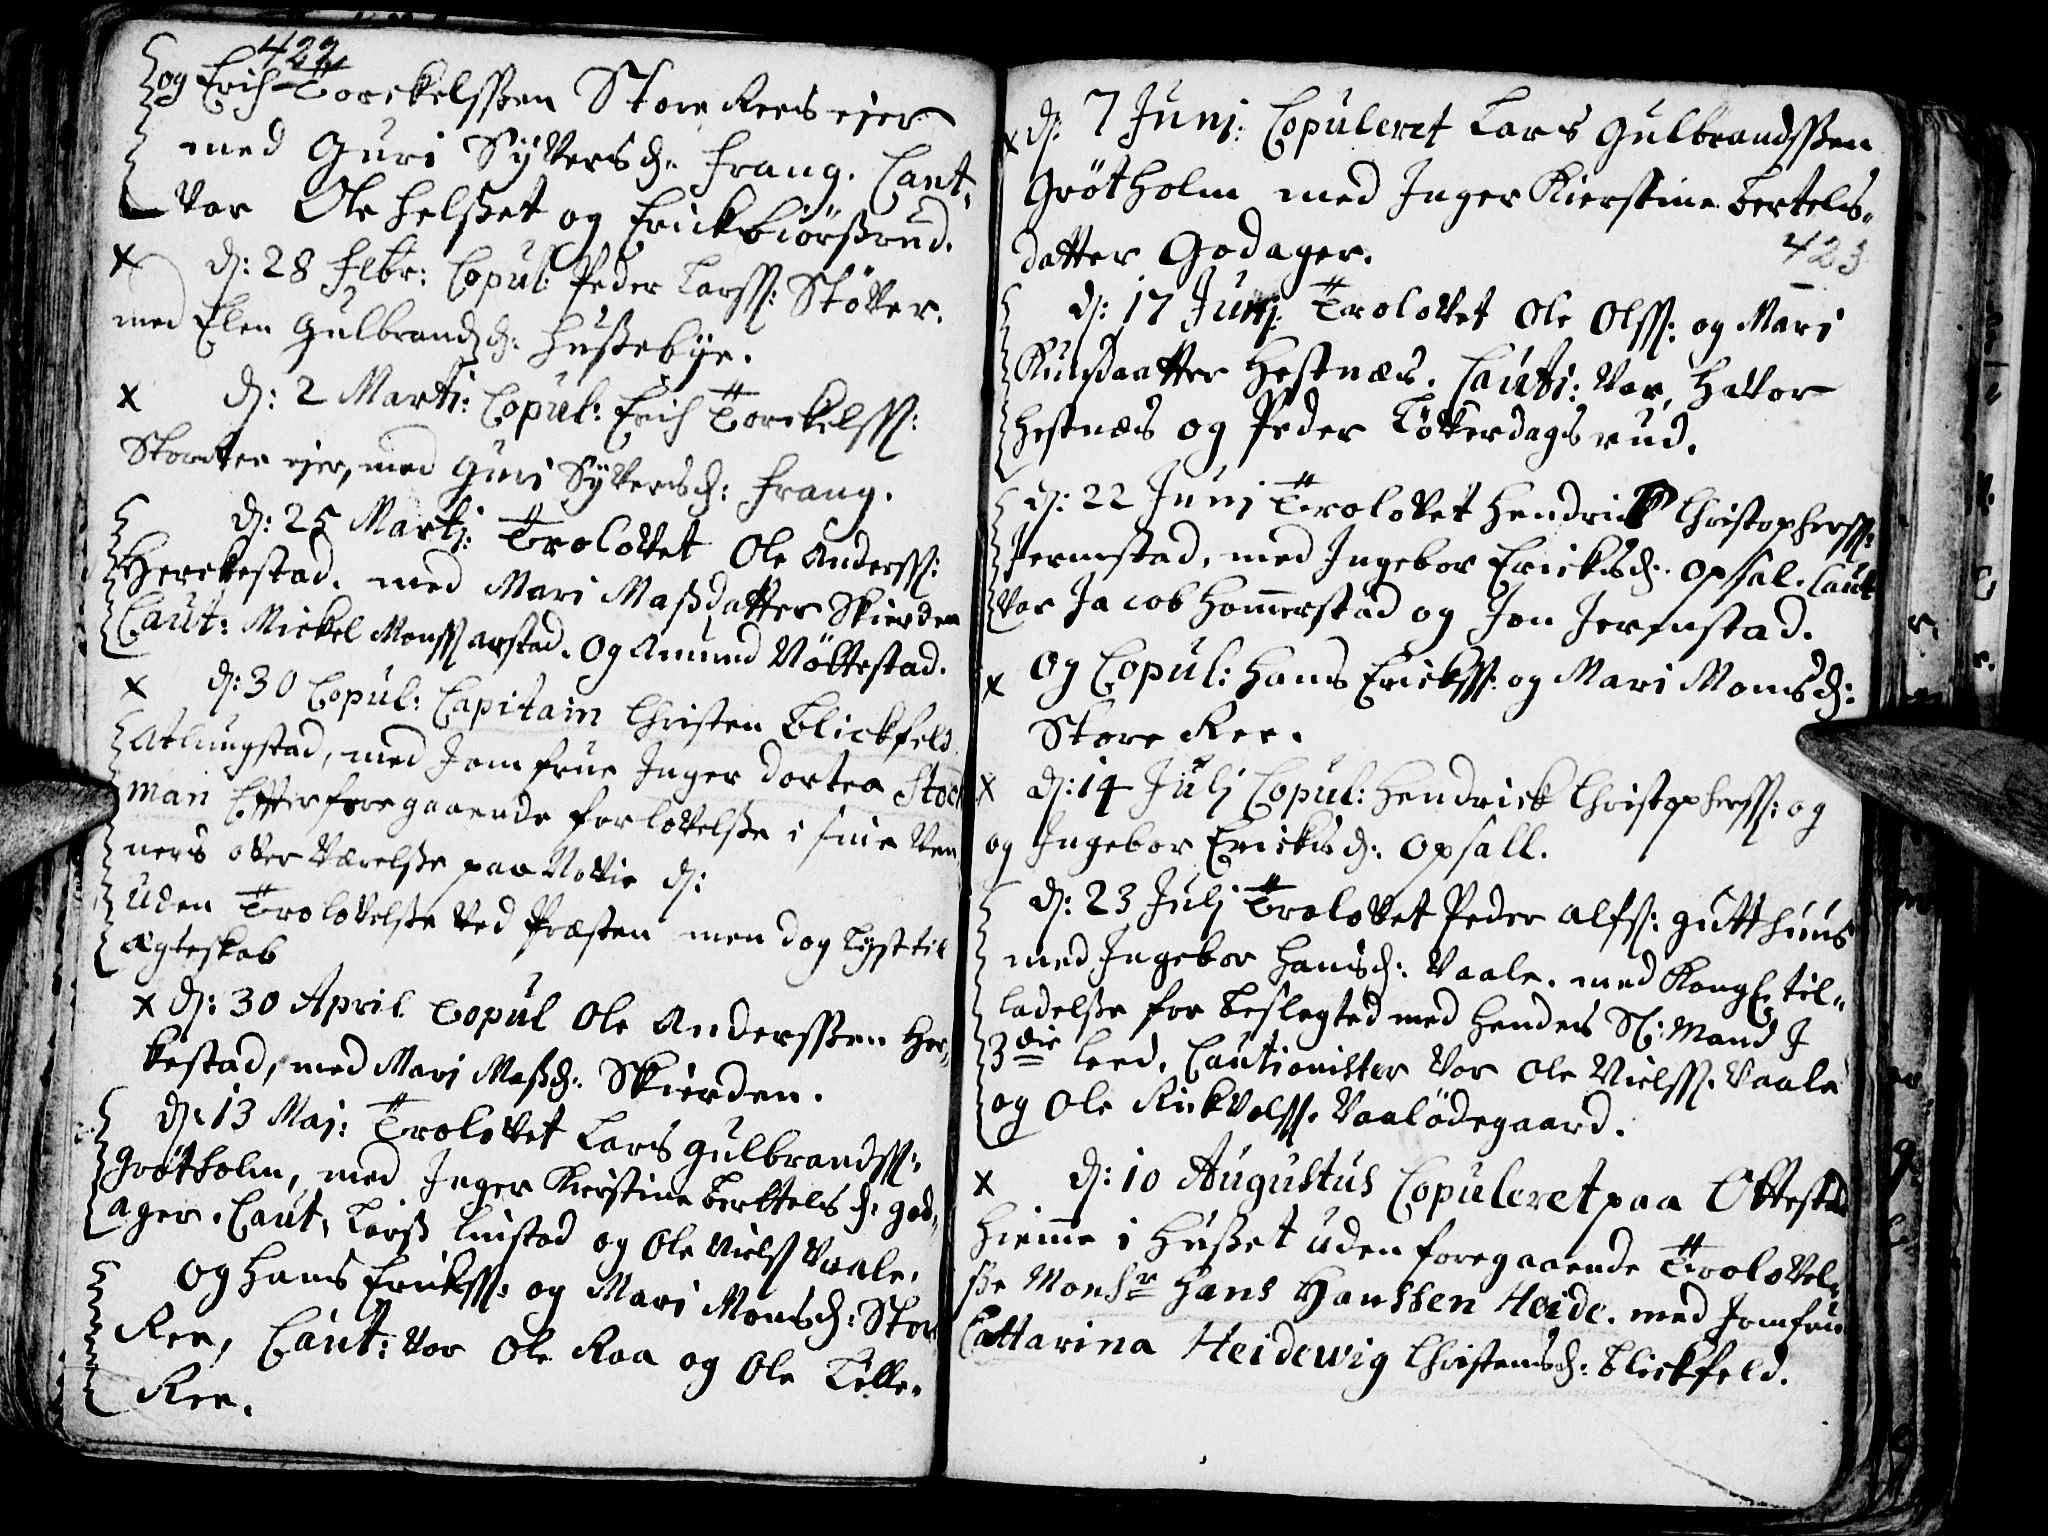 422
og Erich Torckelsßen Store Rees ejer
med Guri Syversd: Frang. Caut.
var Ole Helßet og Erick Biörßrud.
x d: 28 Febr: Copul: Peder Larss: Stöver.
med Elen Gulbrandsd: Hußebye.
x d: 2 Martj: Copul: Erich Torckelss:
Store Ree ejer, med Guri Syversd: Frang.
d: 25 Martj: Trolovet Ole Anderss:
Herckestad. med Mari Maßdatter Skierden
Caut: Mickel Monss arstad. Og Amund Nöttestad.
x d: 30 Copul: Capitain Christen Blickfeld
Atlungstad, med Jomfrue Inger Dortea Stock
man Efter foregaaende forlovelße i sine Ven
ners overværelße paa Novie d:
Uden Trolovelße ved Præsten men dog lyst til
Ægteskab
x d: 30 April Copul Ole Andersßen Her-
kestad, med Mari Maßd: Skierden.
d: 13 Maj: Trolovet Lars Gulbrandss:
Grötholm, med Inger Kierstine Berttels d: God-
ager. Caut: Larß Linstad og Ole Nielss Vaale.
Og Hans Erickss: og Mari Monsd: Store
Ree, Caut: var Ole Raa og Ole Lille-
Ree.
x d: 7 Junj: Copuleret Lars Gulbrandsßen
Grötholm med Inger Kierstine Bertels-
datter Godager.
423
d: 17 Junj: Trolovet Ole Olss: og Mari
Knudsdaatter Hestnæs. Cauti: var, Halvor
Hestnæs og Peder Löverdagsrud.
d: 22 Junj Trolovet Hendrick Christopherss:
Jermstad, med Ingebor Ericksd: Opsal. Caut
var Jacob Hommerstad og Jon Jermstad.
x Og Copul: Hans Erickss: og Mari Monsd:
Store Ree.
x d: 14 Julj Copul: Hendrick Christopherss: og
og Ingebor Ericksd: Opsall.
d: 23 Julj Trolovet Peder Alfs: Gutthuus
med Ingebor Hansd: Vaale. med Kongl: til-
ladelße for Beslegted med Hendes Sl: Mand I
3die Leed. Cautionister var Ole Nielss. Vaale
og Ole Rickvolss. Vaalödegaard.
x d: 10 Augustus Copuleret paa Ottestad
Hiemme i Hußet uden foregaaende Trolovel-
ße Monsr Hans Hanssen Heide. med Jomfrue
Cattarina Heidewig Christensd: Blickfeld.